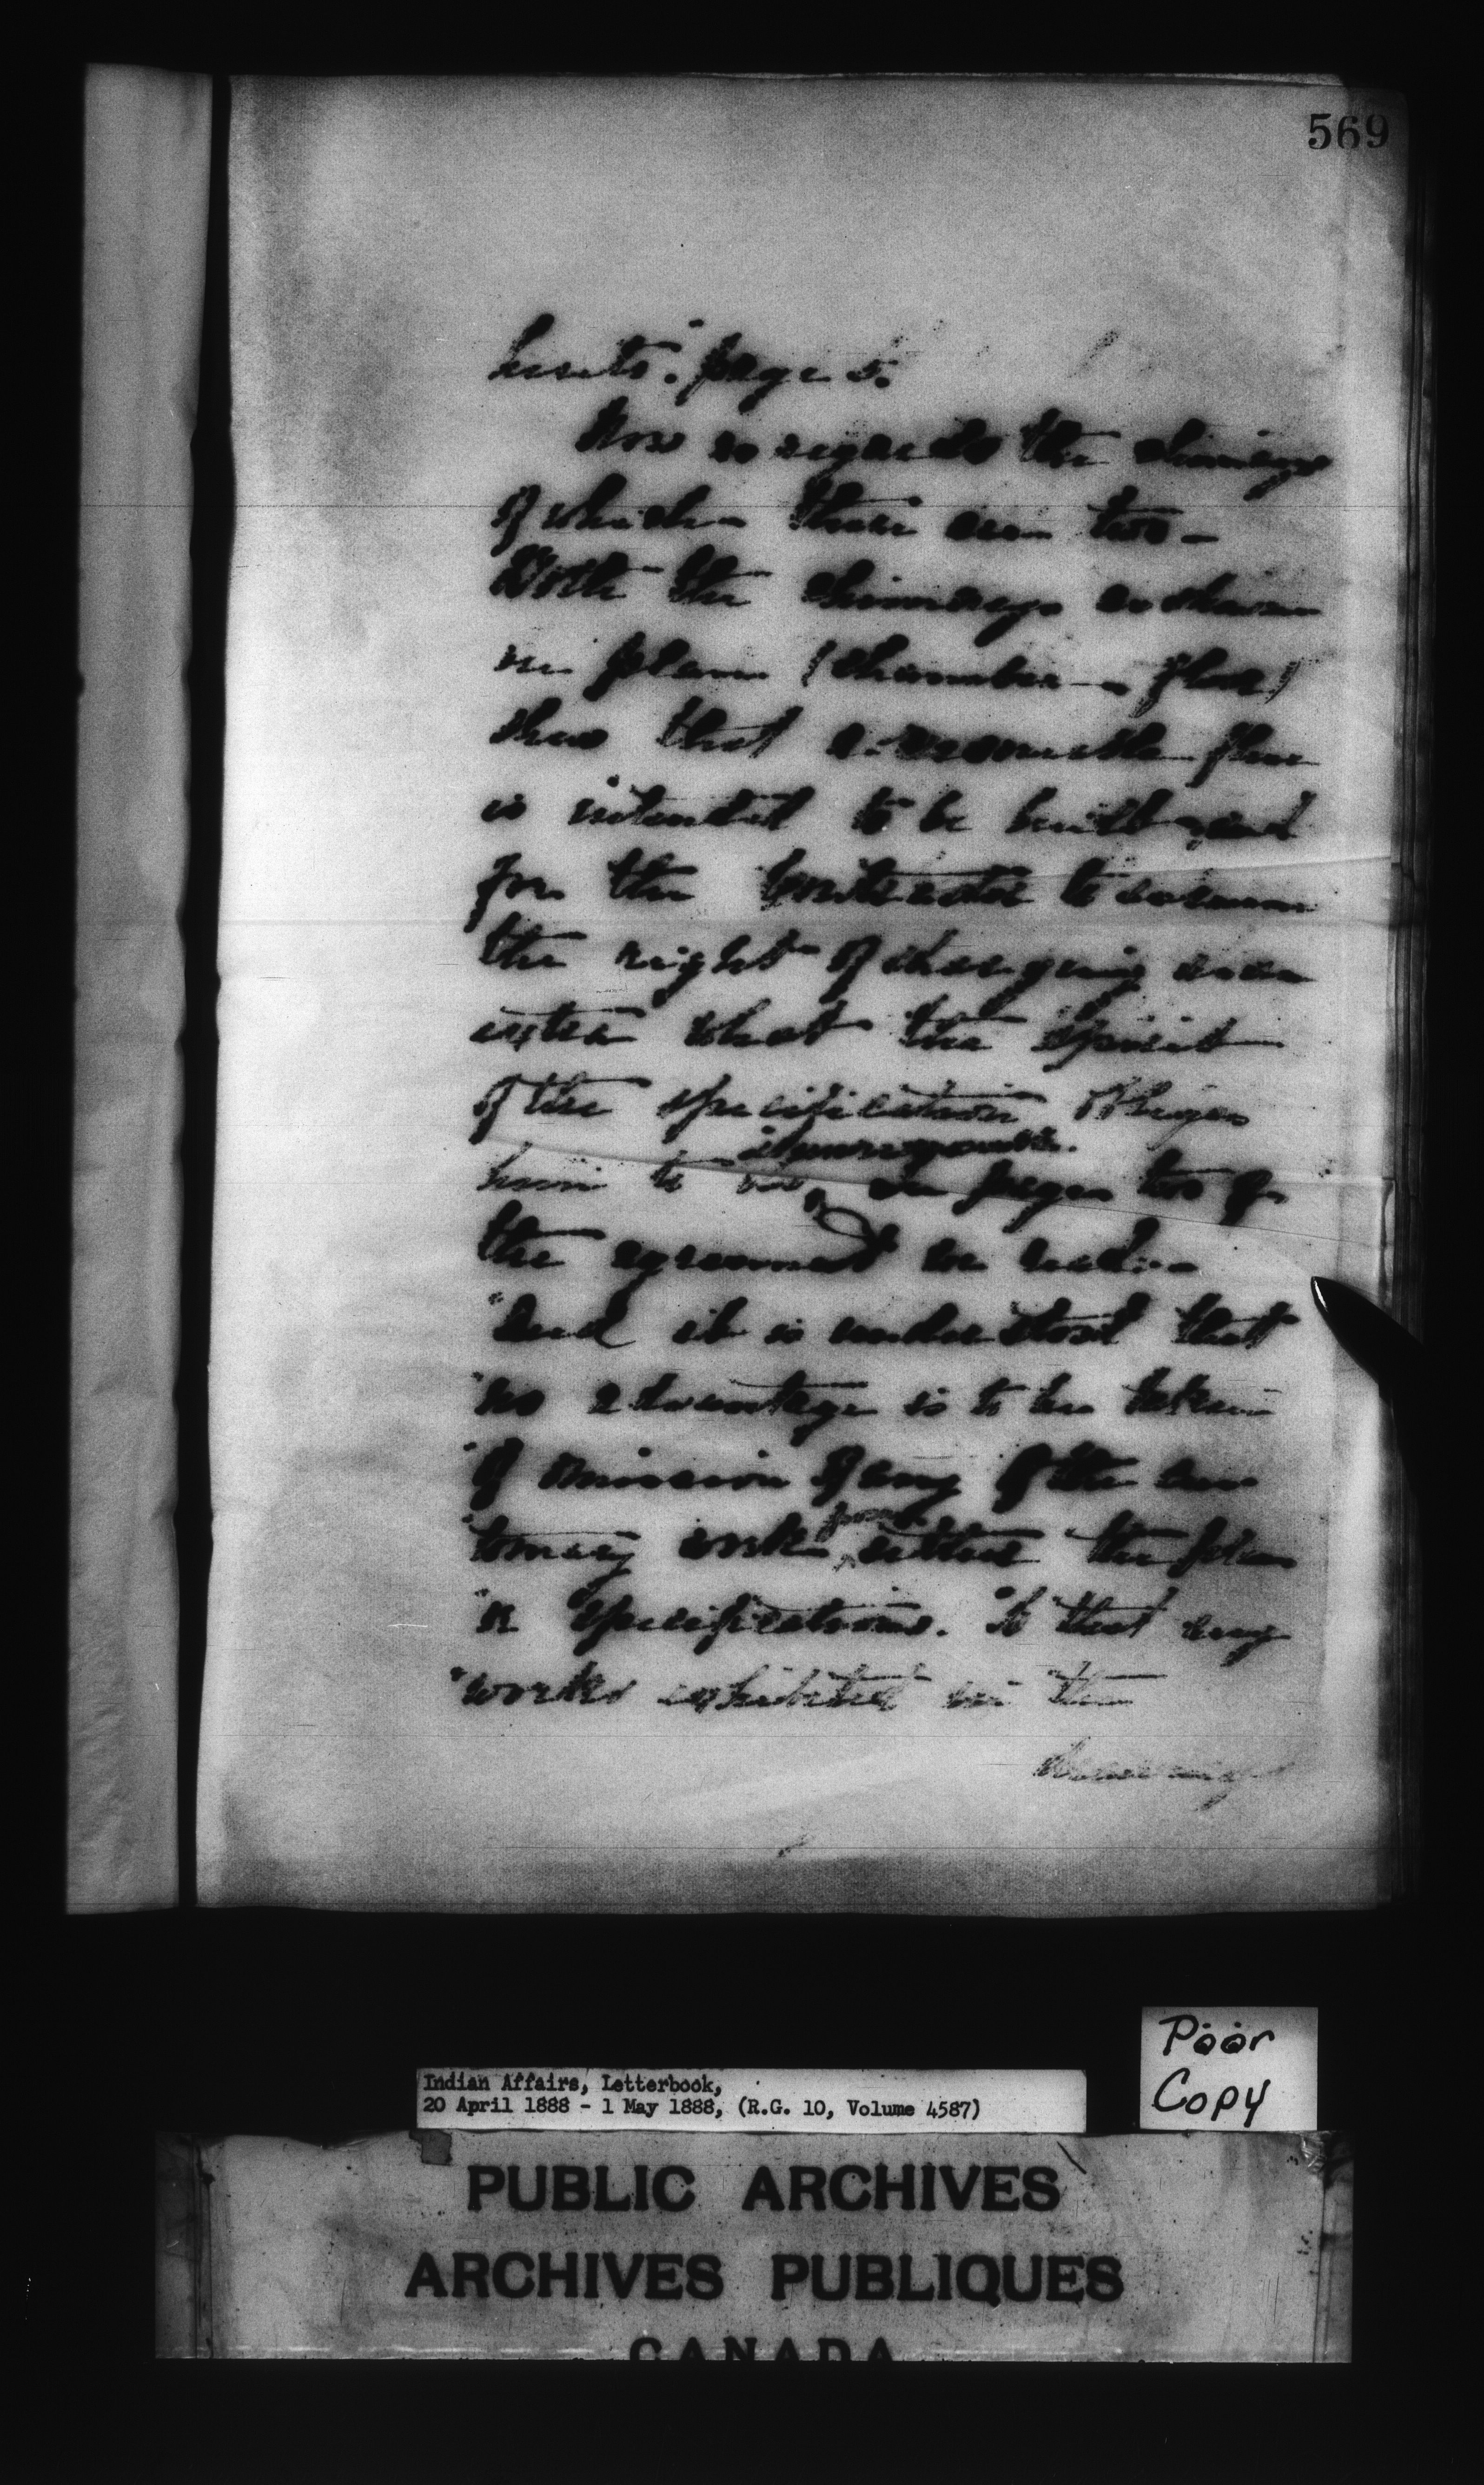 569
page 5.
Now as regards the chimneys
of which there are two –
Both the chimneys as shown
on plan (chamber flue)
show that a flue
is intended to be built and
for the Contractor to assume
the right of charging as an
extra what the spirit
of the specification obliges
him to do, is unreasonable. on page two of
the agreement we read: –
"And it is understood that
"no advantage is to be taken
"of omission of any of the cus
"tomary work from either the plan
"or specifications. & that any
"works exhibited in the
drawings
Poor
Copy
Indian Affairs, Letterbook,
20 April 1888 - 1 May 1888, (R.G. 10, Volume 4587)
PUBLIC ARCHIVES
ARCHIVES PUBLIQUES
CANADA